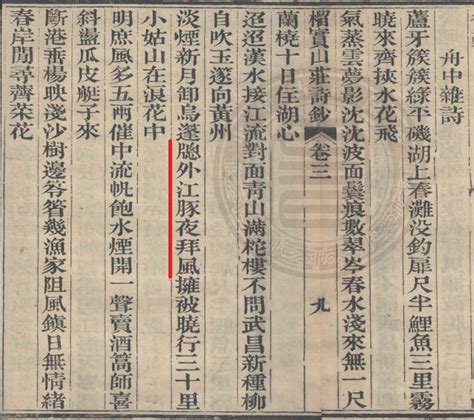 舟中雜詩
蘆牙簇簇綠平磯湖上春灘没釣扉尺半鯉魚三里霧
曉來齊挾水花飛
氣蒸雲夢影沈沈波面鬟痕數翠岑春水淺來無一尺
榴實山莊詩鈔 卷三 九
蘭橈十日住湖心
迢迢漢水接江流對面青山满柁樓不問武昌新種柳
自吹玉篴向黃州
淡煙新月卸烏篷牕外江豚夜拜風擁被曉行三十里
小姑山在浪花中
明庶風多五兩催中流帆飽水煙開一聲賣酒篙師喜
斜盪瓜皮艇子來
斷港垂楊映淺沙樹邊笭箵幾漁家阻風鎮日無情緒
春岸閒尋薺菜花